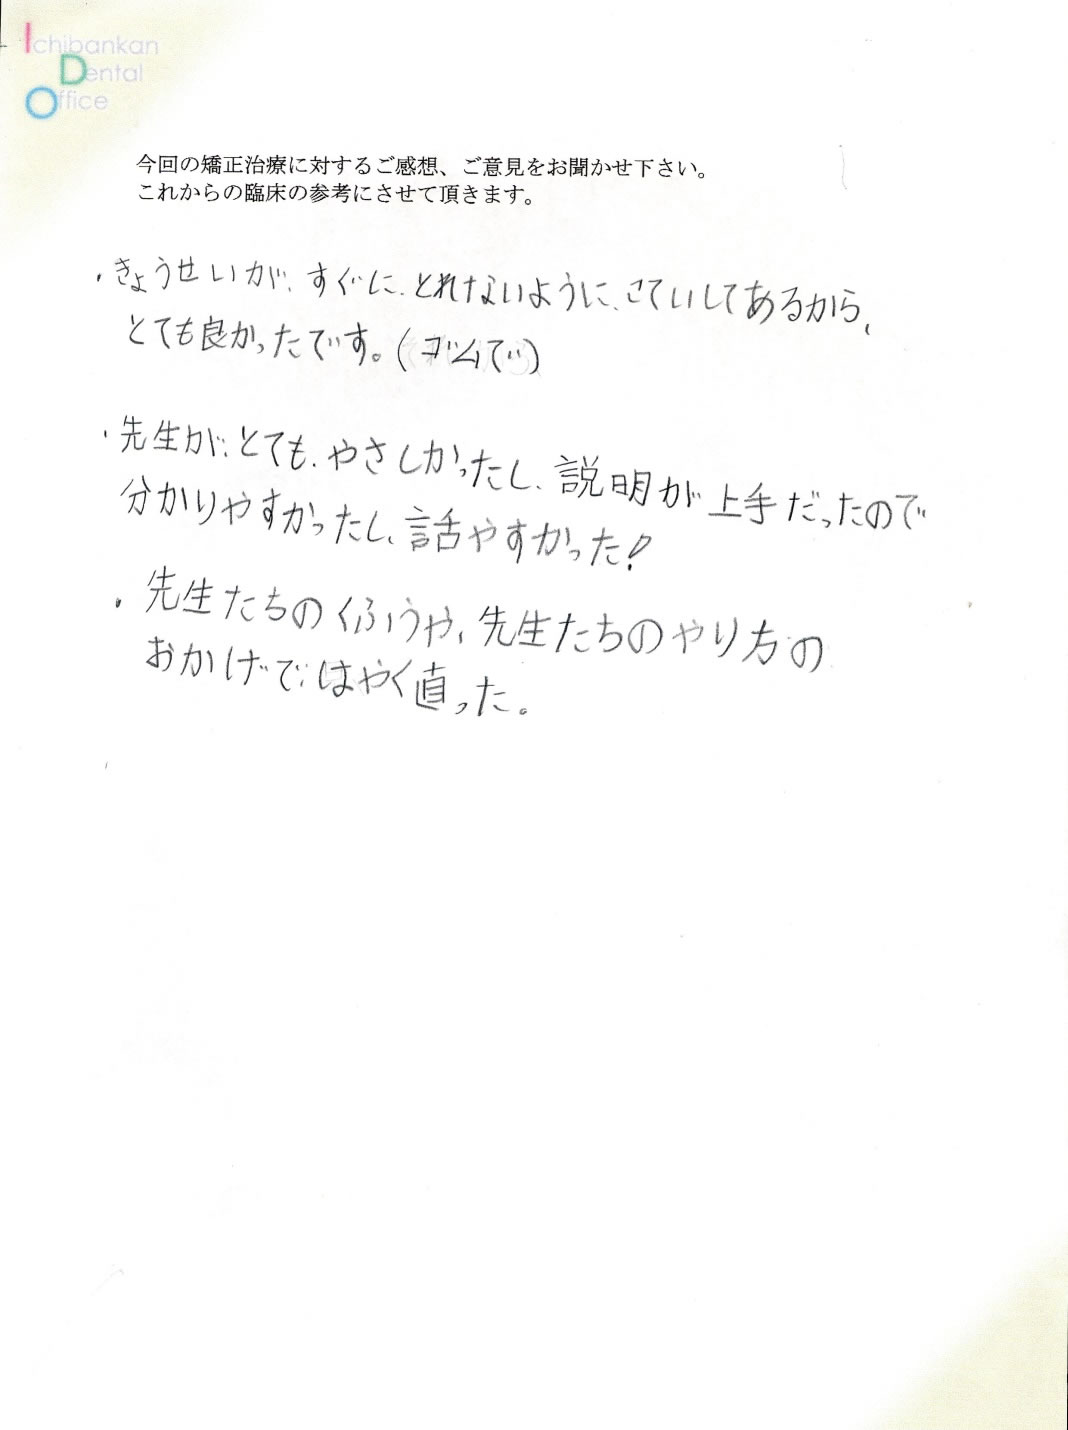 Ichibankan
Dental
Office
今回の矯正治療に対するご感想、ご意見をお聞かせ下さい。
これからの臨床の参考にさせて頂きます。
・きょうせいが、すぐに、とれないように、こていしてあるから、
とても良かったです。(ゴムで)
・先生が、とても、やさしかったし、説明が上手だったので
分かりやすかったし、話やすかった!
・先生たちのくふうや、先生たちのやり方の
おかげで、はやく直った。